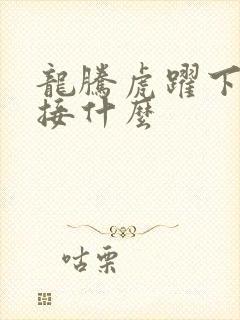 龍騰虎躍下
接什麼
咕栗